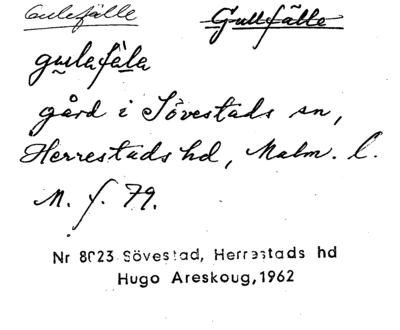 Gulefälle Gullfälle
gulafäla
gård i Sövestads sn,
Herrestads hd, Malm. l.
M. f. 79.
Nr 8023 Sövestad, Herrestads hd
Hugo Areskoug, 1962